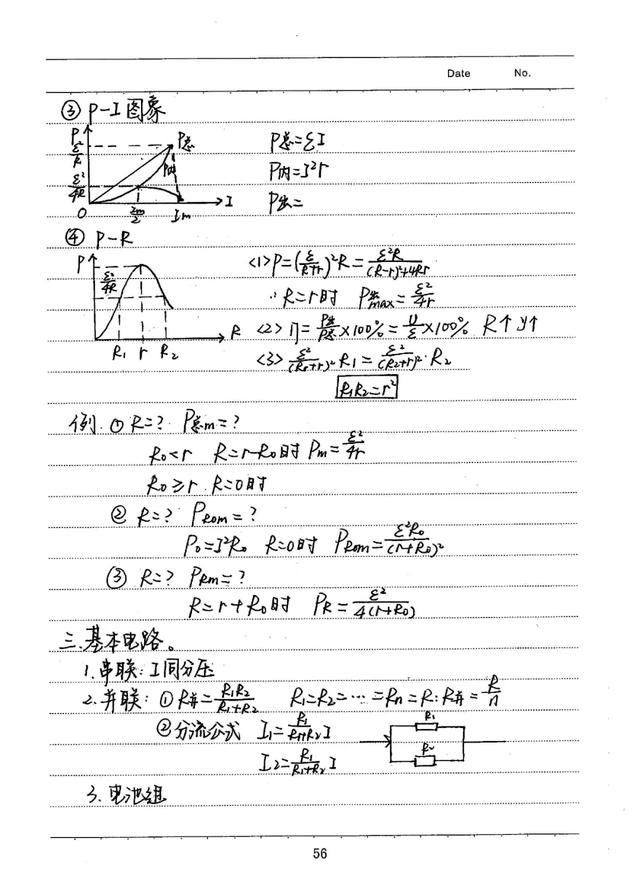 Date No.
③ P-I 图象
P
ε²/R
ε²/4R
O
P总
P内
Im/2
Im
I
P总=εI
P内=I²r
P出=
④ P-R
P
ε²/4R
R₁ r R₂
R
<1> P=(ε/R+r)²R=ε²R/(R-r)²+4Rr
∵R=r时 P出max=ε²/4r
<2> η=P出/P总×100%=U/ε×100% R↑ y↑
<3> ε²/(R₁+r)²·R₁=ε²/(R₂+r)²·R₂
R₁R₂=r²
例. ① R=? P总m=?
R₀<r R=r-R₀时 Pm=ε²/4r
R₀≥r R=0时
② R=? PR₀m=?
P₀=I²R₀ R=0时 PR₀m=ε²R₀/(r+R₀)²
③ R=? PRm=?
R=r+R₀时 PR=ε²/4(r+R₀)
三.基本电路。
1.串联:I同分压
2.并联:① R并=R₁R₂/R₁+R₂ R₁=R₂=…=Rn=R:R并=R/n
②分流公式 I₁=R₁/R₁+R₂ I
I₂=R₁/R₁+R₂ I
R₁
R₂
3.电池组
56